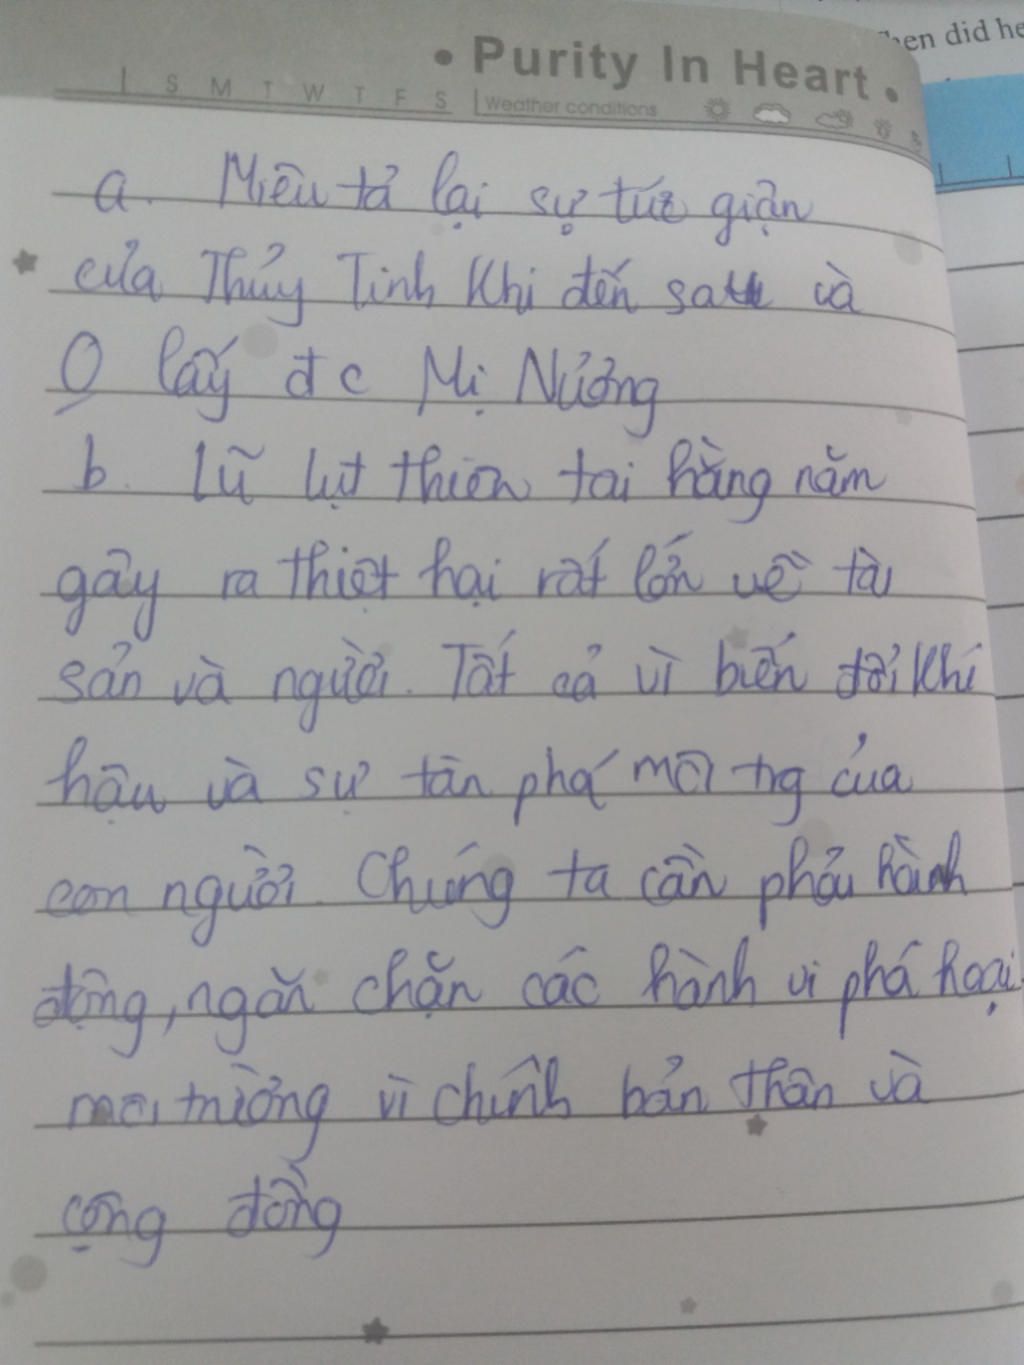 hen did he
• Purity In Heart •
S M T W T F S Weather conditions
a. Miêu tả lại sự tức giận
của Thủy Tinh khi đến sau và
O lấy đc Mị Nương
b. Lũ lụt thiên tai hằng năm
gây ra thiệt hại rất lớn về tài
sản và người. Tất cả vì biến đổi khí
hậu và sự tàn phá môi tng của
con người. Chúng ta cần phải hành
động, ngăn chặn các hành vi phá hoại
môi trường vì chính bản thân và
cộng đồng